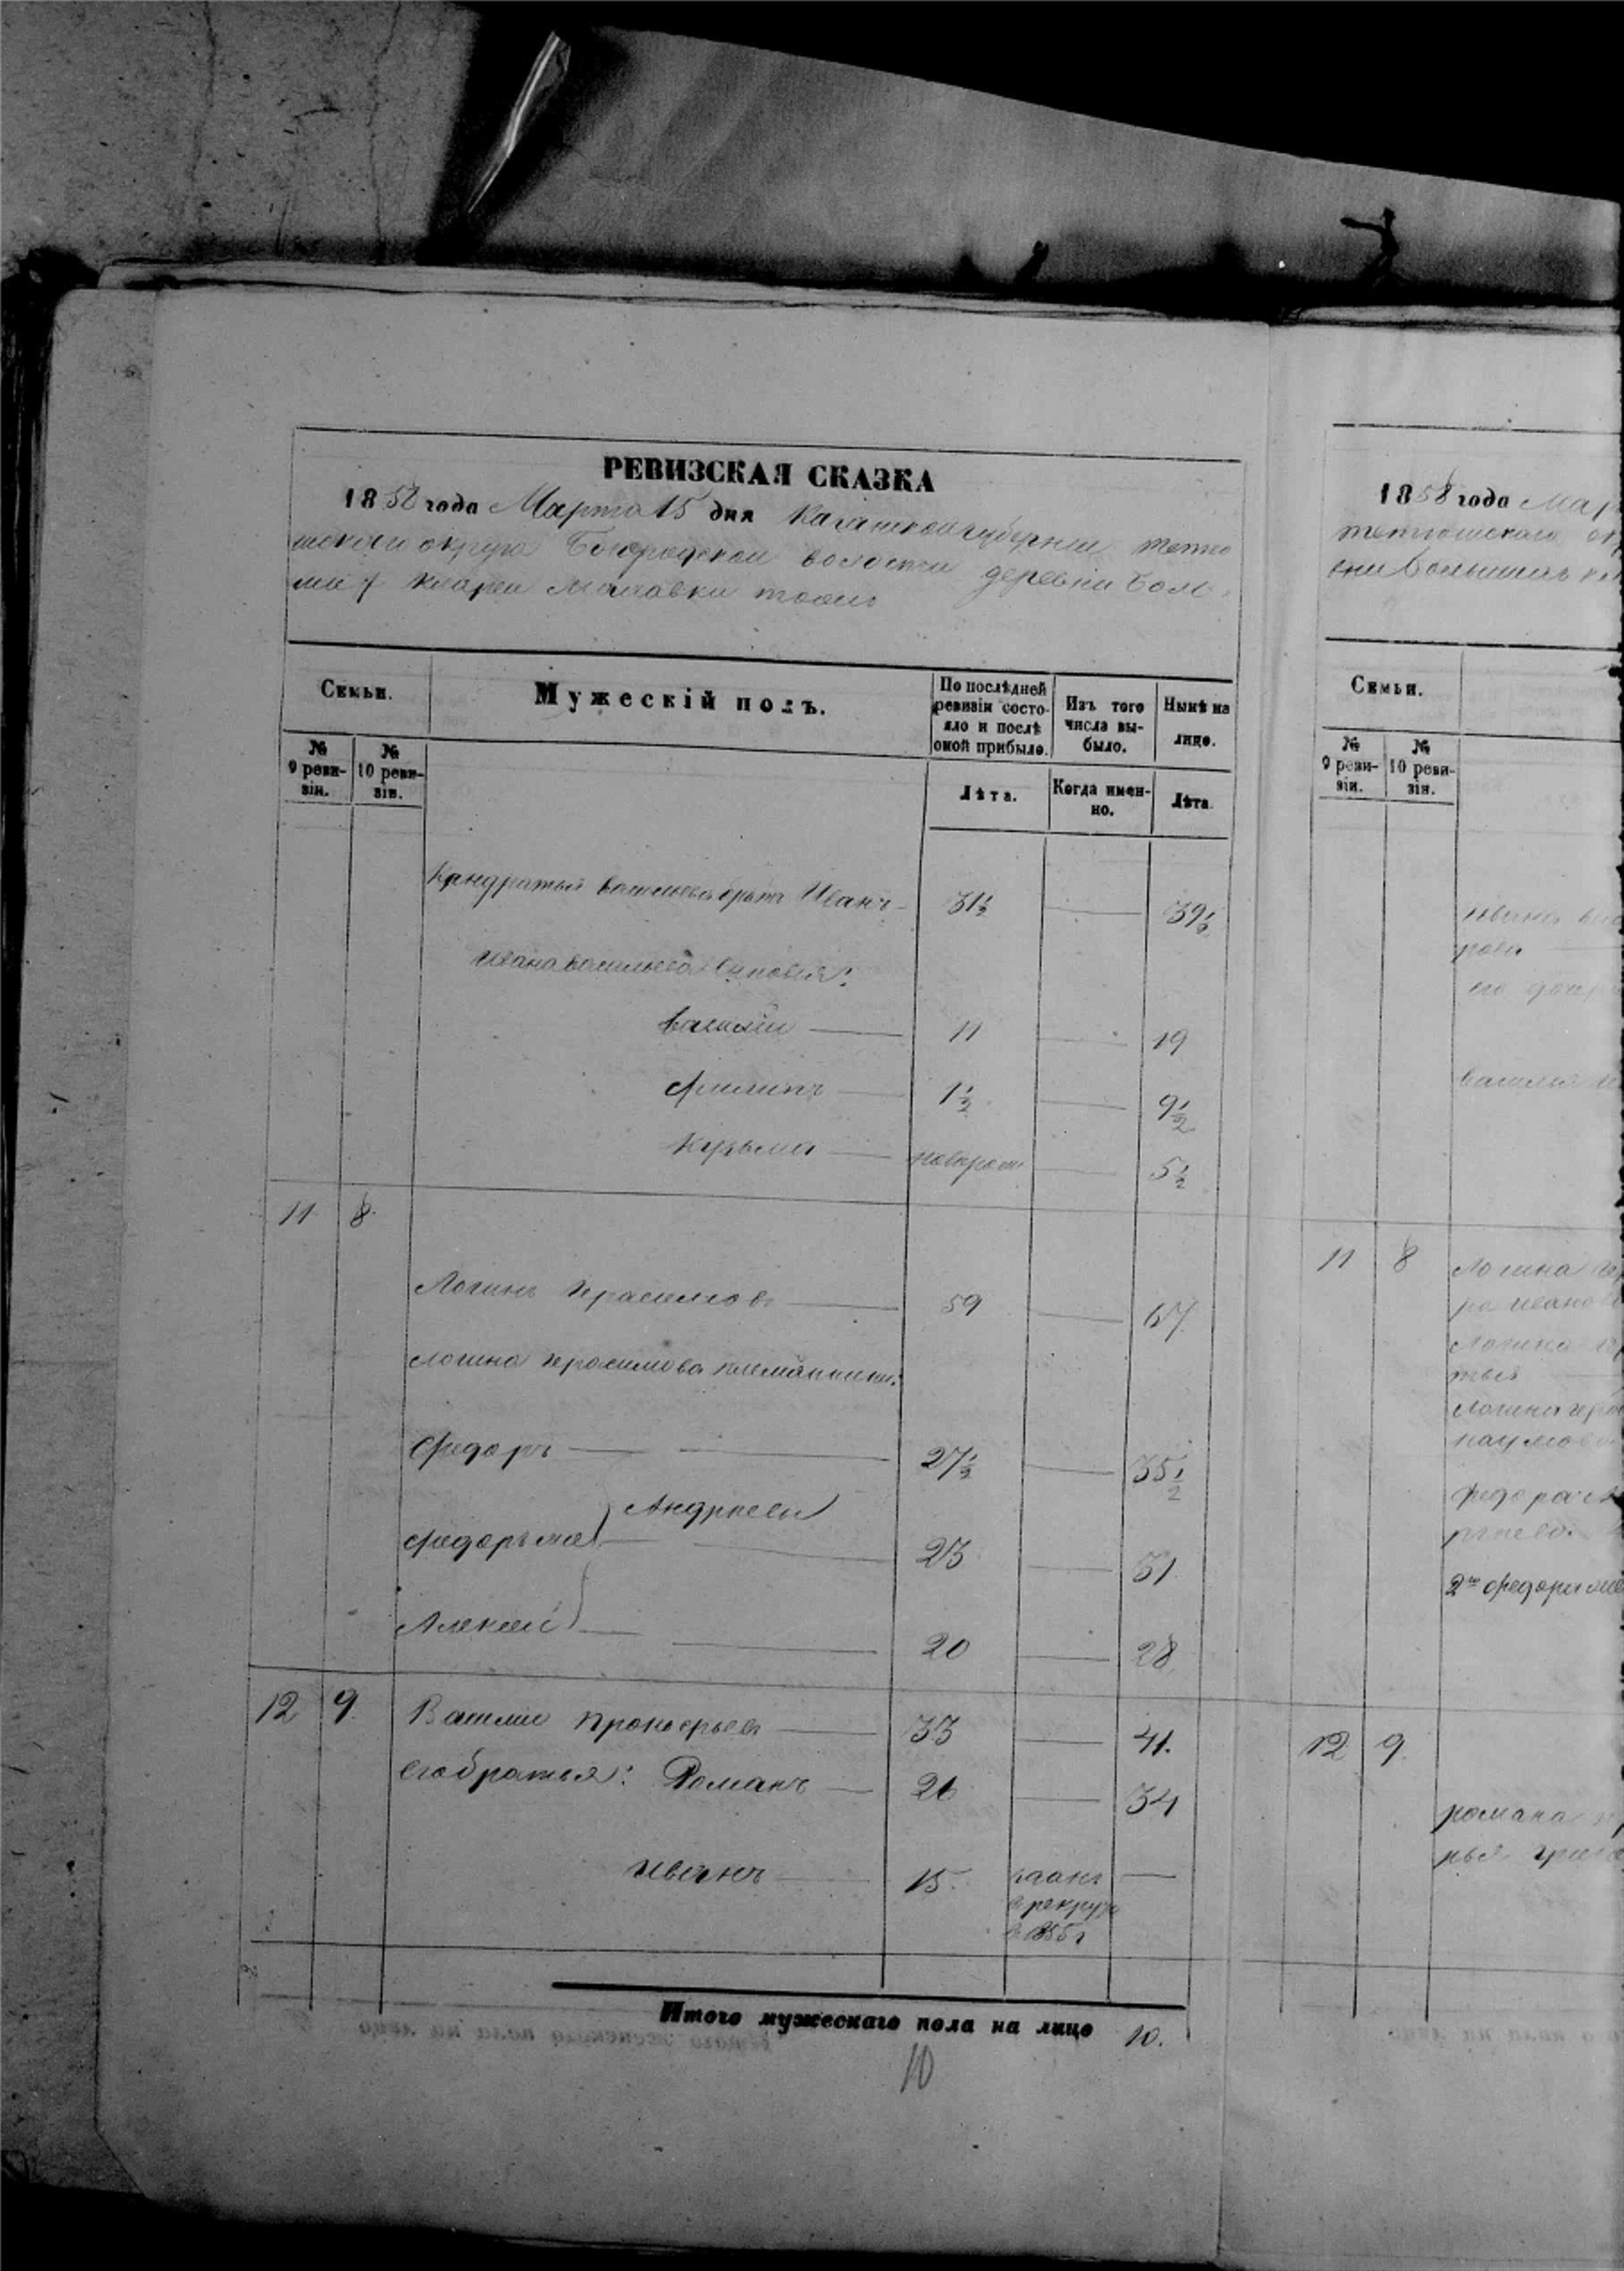 РЕВИЗСКАЯ СКАЗКА
1858 года Марта 15 дня Казанской губернии тетю
шскаго округа Богородской волости деревни Боль
Семьи.
Мужескій полъ.
По послѣдней ревизіи состояло и послѣ оной прибыло.
Изъ того числа вы-было.
Нынѣ на лицо.
№ 9 реви-зіи.
№ 10 реви-зіи.
Лѣта.
Когда имен-но.
Лѣта.
Кандратья васильева братъ Иванъ 31½ 39½
Ивана васильева сыновья:
василий 11 19
филипъ 1½ 9½
Кузьма новорож 5½
11 8
Логинъ герасимовъ 59 67
Логина герасимова племянники:
Федоръ 27½ 35½
Андреевы
федоръ же 23 31
Алексей 20 28
12 9 Василий прокофьевъ 33 41.
его братья: Романъ 26 34
иванъ 15
в рекруты
в 1855 г
Итого мужескаго пола на лицо 10.
10
1858 года Мар
тетюшскаго ок
Семьи.
№ 9 реви-зіи.
№ 10 реви-зіи.
его доч
василья
11 8 Логина
ра иванов
Логина
Логина гера
наумова
федора
2й федора же
12 9
романа